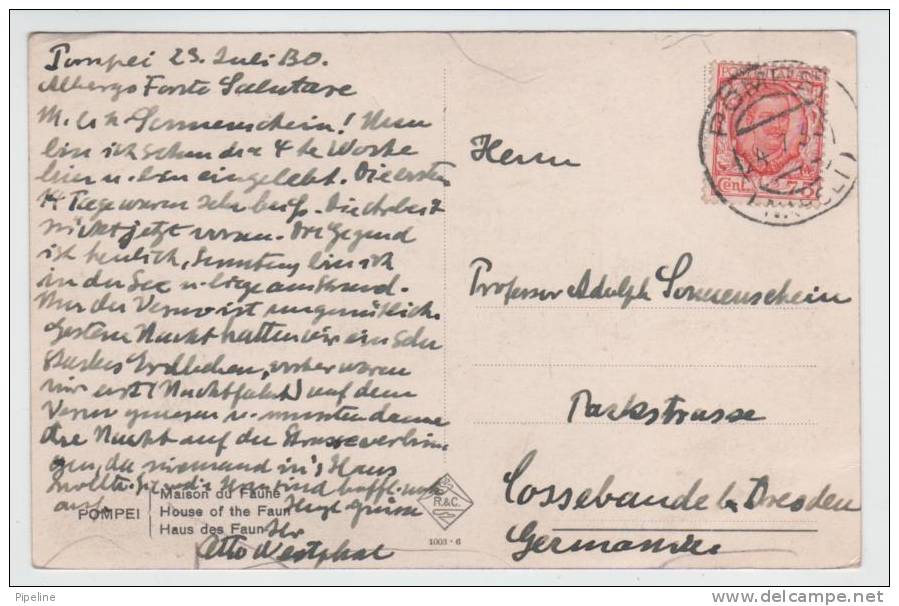 Pompei 23. Juli 30.
Albergo Fonte Salutare
M. l. H. Sonnenschein! Nun
bin ich schon die 4te Woche
hier u. bin eingelebt. Die ersten
14 Tage waren sehr heiß. Die Arbeit
rückt jetzt voran. Die Gegend
ist herrlich, Sonntag bin ich
in der See u. liege am Strand.
Nur der Vesuv ist ungemütlich.
Gestern Nacht hatten wir ein sehr
starkes Erdbeben, vorher waren
wir erst (Nachtfahrt) auf dem
Vesuv gewesen u. mussten dann
die Nacht auf der Strasse verbrin
gen, da niemand in's Haus
wollte. Sie u. die Ihren sind hoffl. wohl
auch. Herzl. Grüsse
Ihr
Otto Westphal
POMPEI
Maison du Faune
House of the Faun
Haus des Faun
R.&C.
1003-6
POMPEI
NAPOLI
Cent. 75
Herrn
Professor Adolph Sonnenschein
Parkstrasse
Cossebaude b. Dresden
Germania
Pipeline
www.delcampe.net